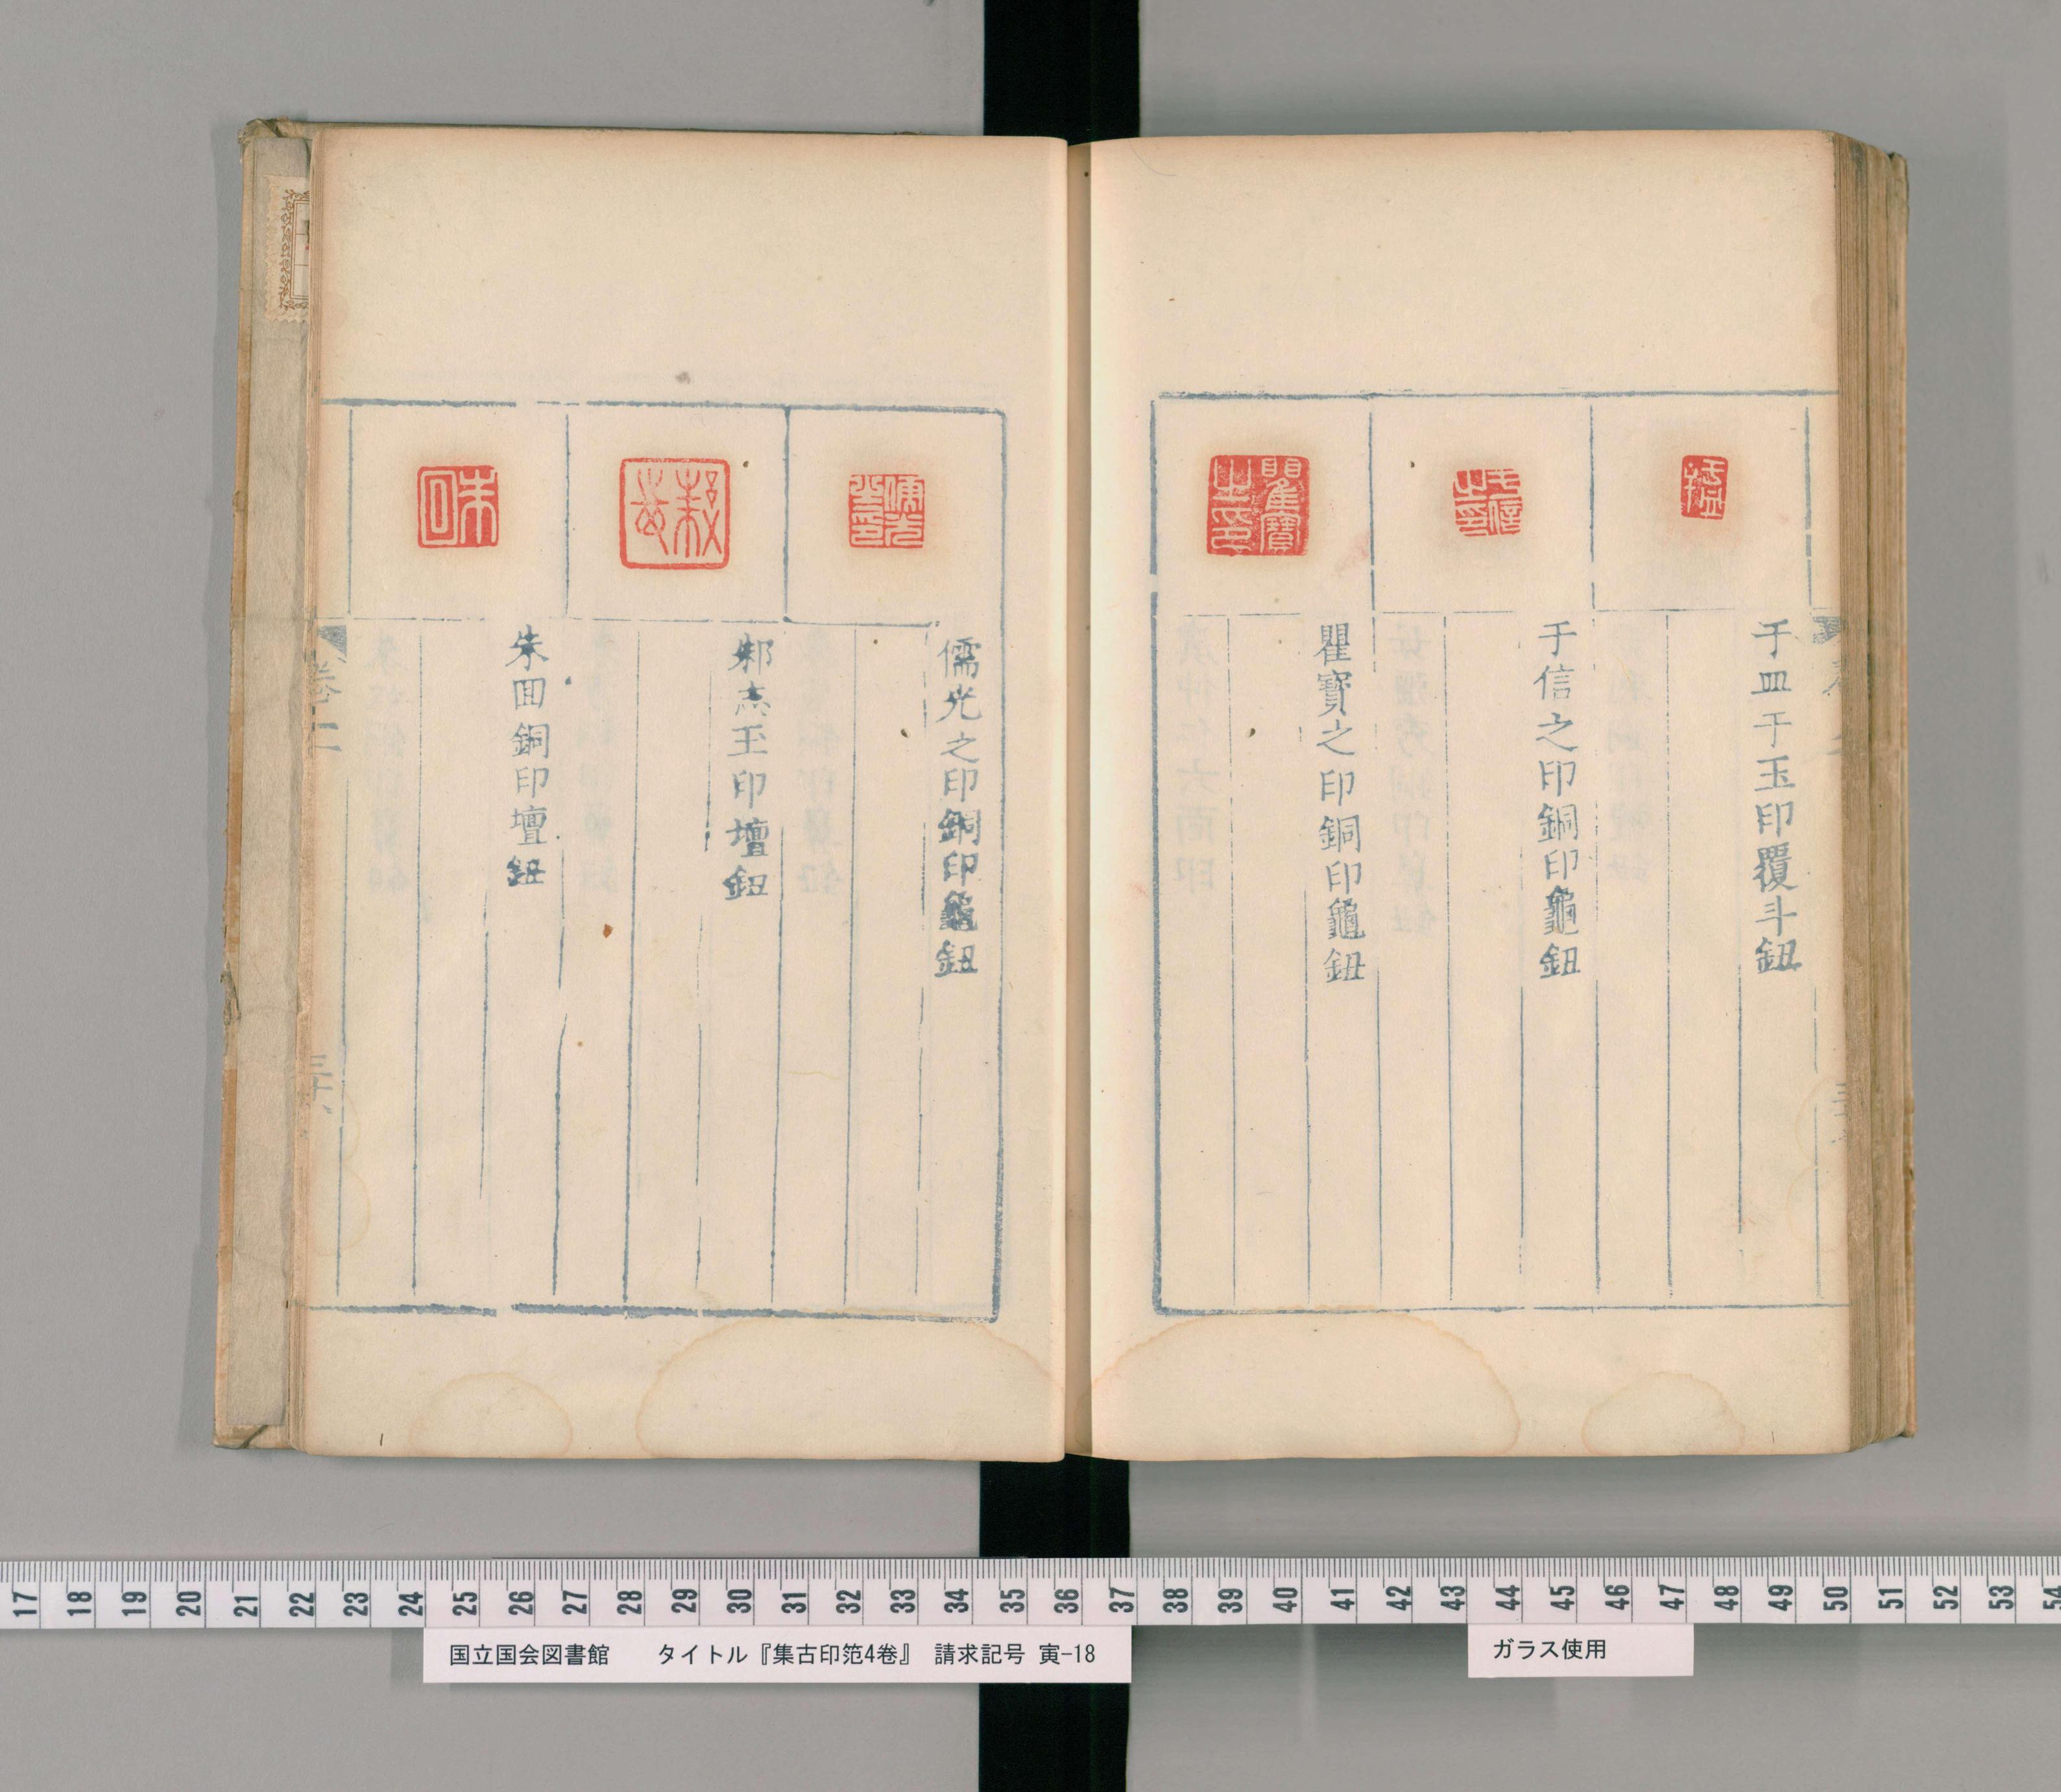 于皿干玉印覆斗鈕
于信之印銅印龜鈕
瞿寶之印銅印龜鈕
儒光之印銅印龜鈕
邾杰玉印壇鈕
朱回銅印壇鈕
17 18 19 20 21 22 23 24 25 26 27 28 29 30 31 32 33 34 35 36 37 38 39 40 41 42 43 44 45 46 47 48 49 50 51 52 53 54
国立国会図書館 タイトル『集古印笵4巻』 請求記号 寅-18
ガラス使用